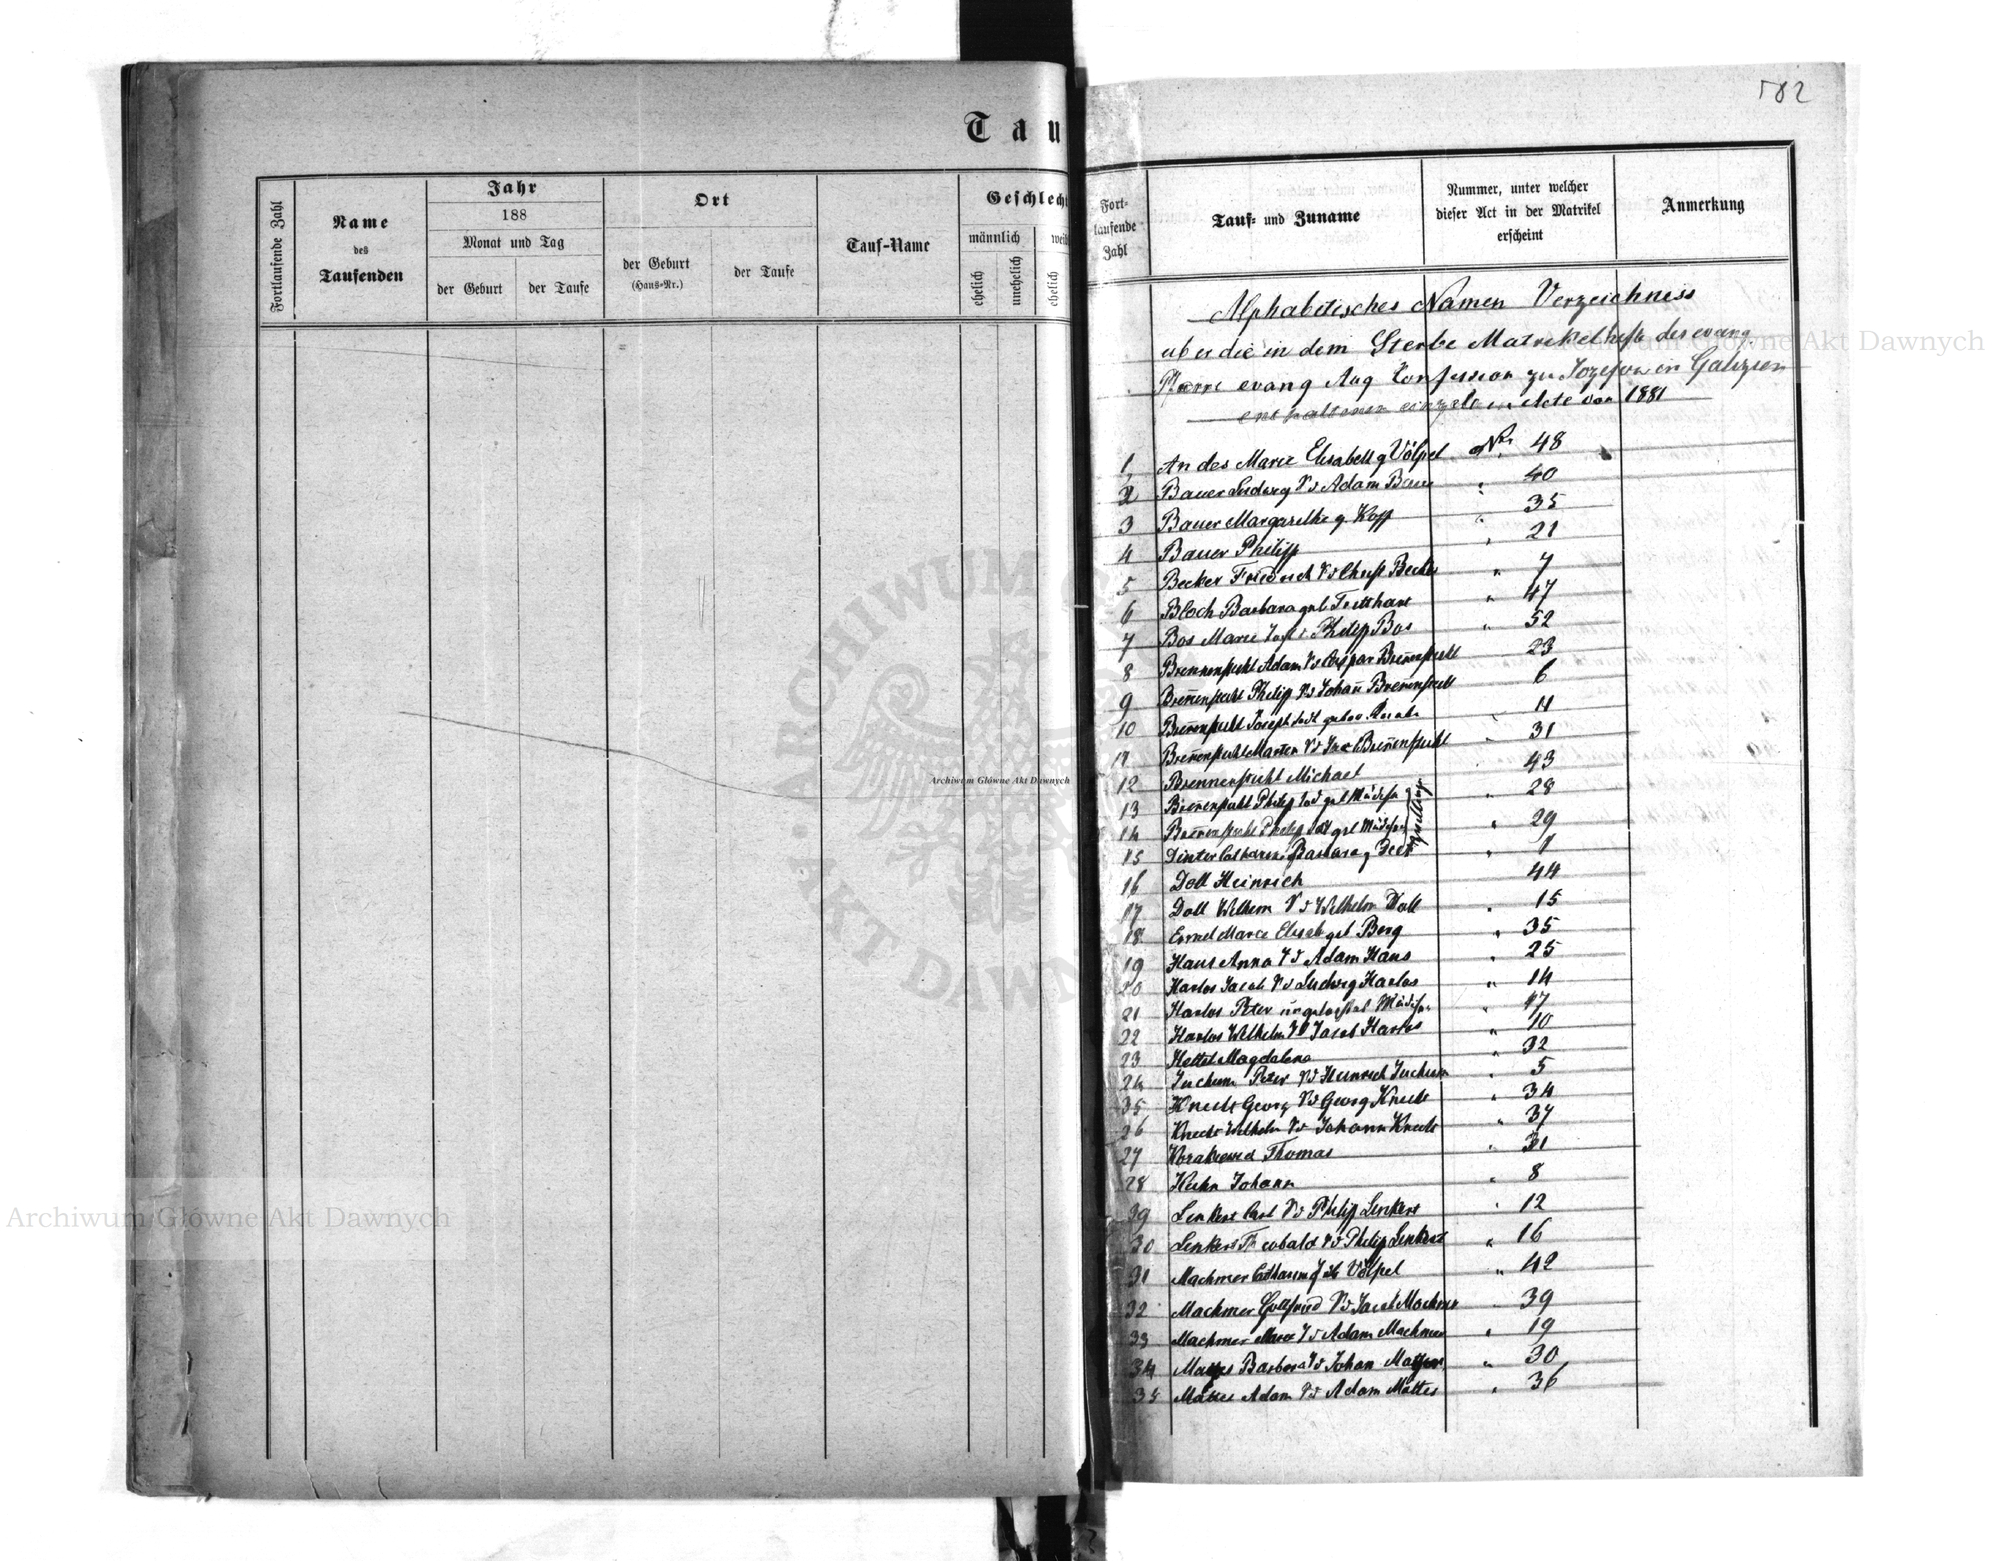 Tau
Fortlaufende Zahl
Name
des
Taufenden
Jahr
188
Monat und Tag
der Geburt
der Taufe
Ort
der Geburt
(Haus-Nr.)
der Taufe
Tauf-Name
Geschlecht
männlich
weib
ehelich
unehelich
ehelich
Archiwum Główne Akt Dawnych
ARCHIWUM G
AKT DAWN
Archiwum Główne Akt Dawnych
582
Fort-
laufende
Zahl
Tauf- und Zuname
Nummer, unter welcher
dieser Act in der Matrikel
erscheint
Anmerkung
Archiwum Główne Akt Dawnych
Alphabetisches Namen Verzeichniss
über die in dem Sterbe Matrikelhefte der evang
Pfarre evang Aug Confession zu Jozefow in Galizien
enthaltenen einzelnen Acte von 1881
1 Andes Marie Elisabett g Völpel Nr 48
2 Bauer Ludwig Vd Adam Bauer 40
3 Bauer Margarethe g. Kopp 35
4 Bauer Philipp 21
5 Becker Friedrich Vd Christ Becker 7
6 Bloch Barbara geb Tritthart 47
7 Bos Marie Philip Bos 52
8 Brennenstuhl Adam Vd Caspar Breñenstuhl 23
9 Breñenstuhl Philip Vd Johañ Breñenstuhl 6
10 Breñenstuhl Joseph todt gebor. Knabe 11
11 Breñenstuhl Martin Vd Jac Breñenstuhl 31
12 Brennenstuhl Michael 43
13 Breñenstuhl Philip tod geb Mädchen 28
14 Breñenstuhl Philip tod geb Mädchen 29
Zwillinge
15 Dinter Catharina Barbara g Beer 1
16 Doll Heinrich 44
17 Doll Wilhem Vd Wilhelm Doll 15
18 Ermel Marie Elisab geb Berg 35
19 Haus Anna Vd Adam Haus 25
20 Harlos Jacob Vd Ludwig Harlos 14
21 Harlos Peter ungetauftes Mädchen 17
22 Harlos Wilhelm Vd Jacob Harlos 10
23 Hettel Magdalena 32
24 Juchum Peter Vd Heinrich Juchum 5
25 Knecht Georg Vd Georg Knecht 34
26 Knecht Wilhelm Vd Johann Knecht 37
27 Thomas 31
28 Kuhn Johann 8
29 Lenkert Carl Vd Philip Lenkert 12
30 Lenkert Theobald Vd Philip Lenkert 16
31 Machmer Catharina geb Völpel 42
32 Machmer Gottfried Vd Jacob Machmer 39
33 Machmer Marie Vd Adam Machmer 19
34 Mattes Barbara Vd Johan Mattes 30
35 Mattes Adam Vd Adam Mattes 36